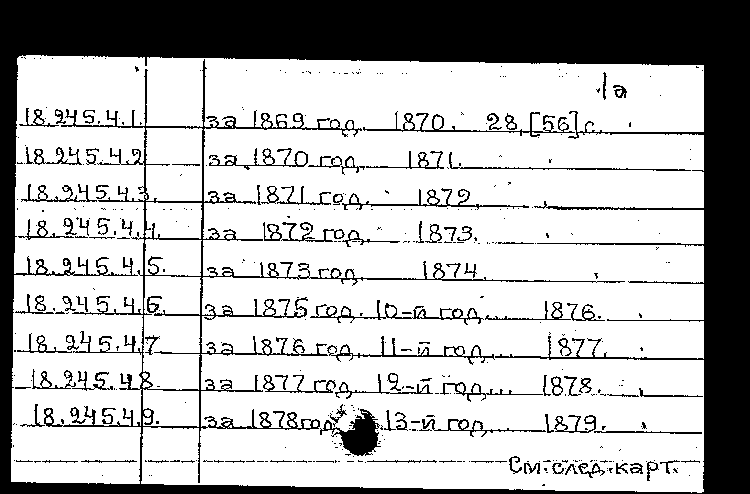 1а
18.245.4.1. за 1869 год. 1870. 28,[56]с.
18.245.4.2 за 1870 год, 1871.
18.245.4.3. за 1871 год. 1872.
18.245.4.4. за 1872 год. 1873.
18.245.4.5. за 1873 год 1874.
18.245.4.6. за 1875 год. 10-й год... 1876.
18.245.4.7 за 1876 год, 11-й год... 1877.
18.245.4.8 за 1877 год, 12-й год... 1878.
18.245.4.9. за 1878 год 13-й год... 1879.
См. след. карт.